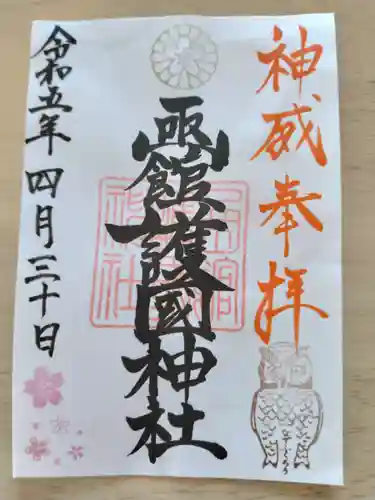 神威奉拝
函館護國神社
令和五年四月三十日